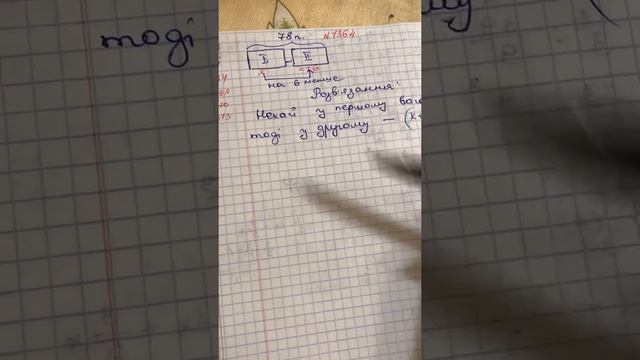 78п. №1364
I II
x x+6
на 6 менше
Розв'язання:
Нехай у першому ваго
тоді у другому — (x+